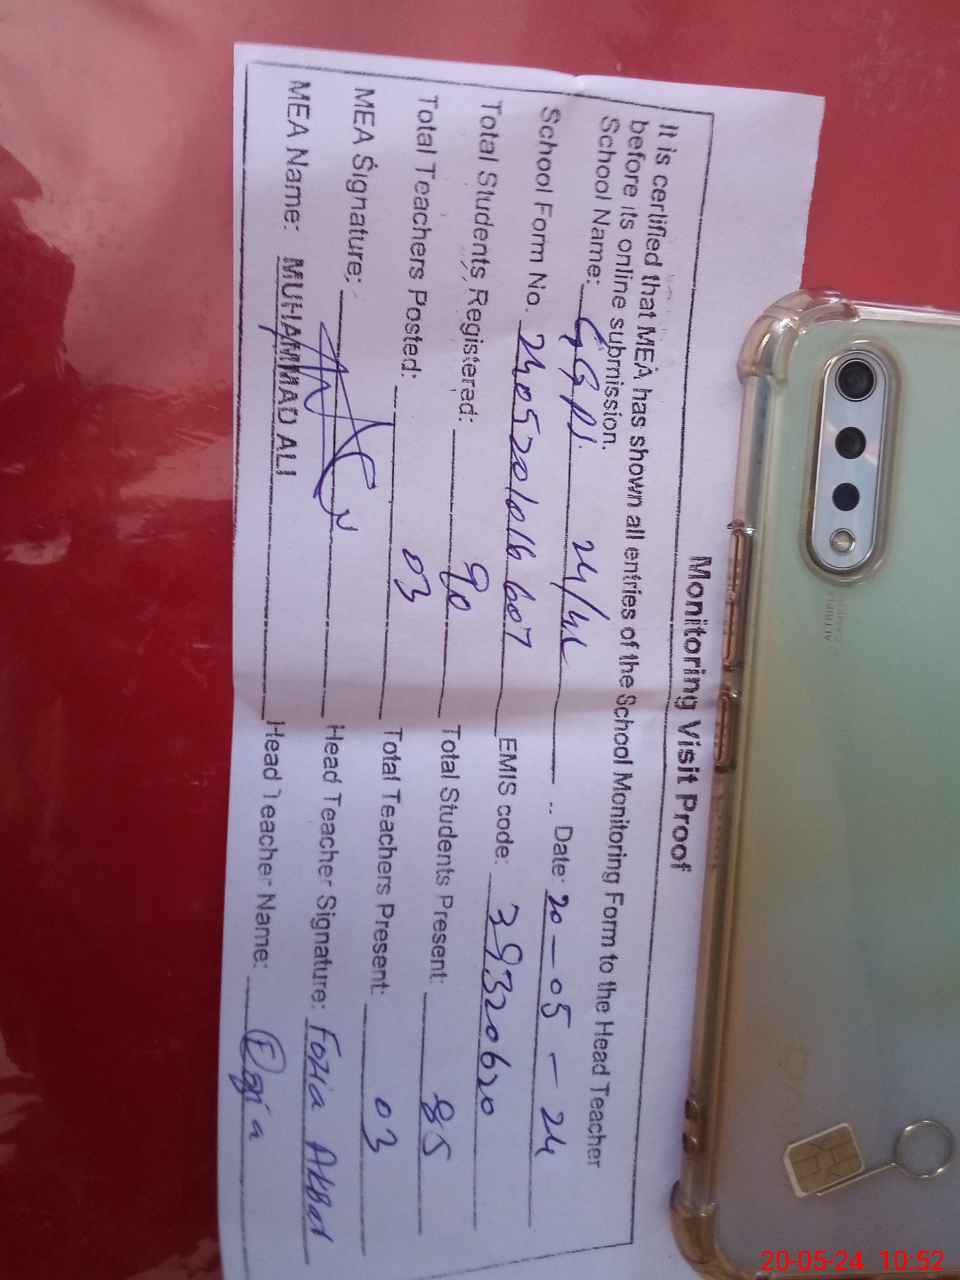 Monitoring Visit Proof
It is certified that MEA has shown all entries of the School Monitoring Form to the Head Teacher
before its online submission.
School Name: GGPS 24/4L Date: 20-05-24
School Form No. 24052016 607 EMIS code: 39320620
Total Students Registered: 90 Total Students Present: 85
Total Teachers Posted: 03 Total Teachers Present: 03
MEA Signature: Head Teacher Signature: Fozia Akbar
MEA Name: MUHAMMAD ALI Head Teacher Name:
20-05-24 10:52